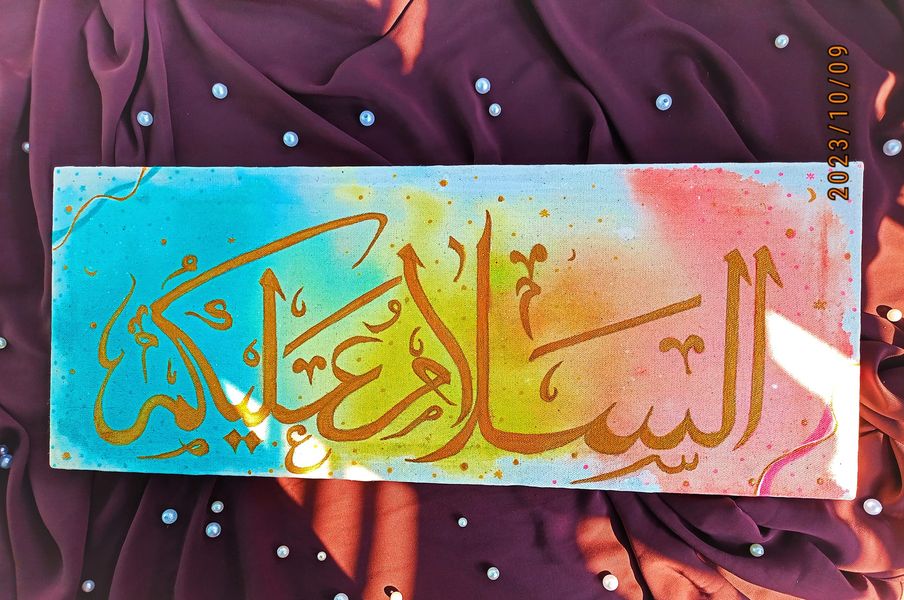 السلام عليكم
2023/10/09